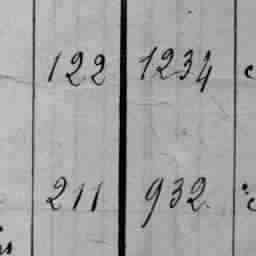 122 1234
211 932